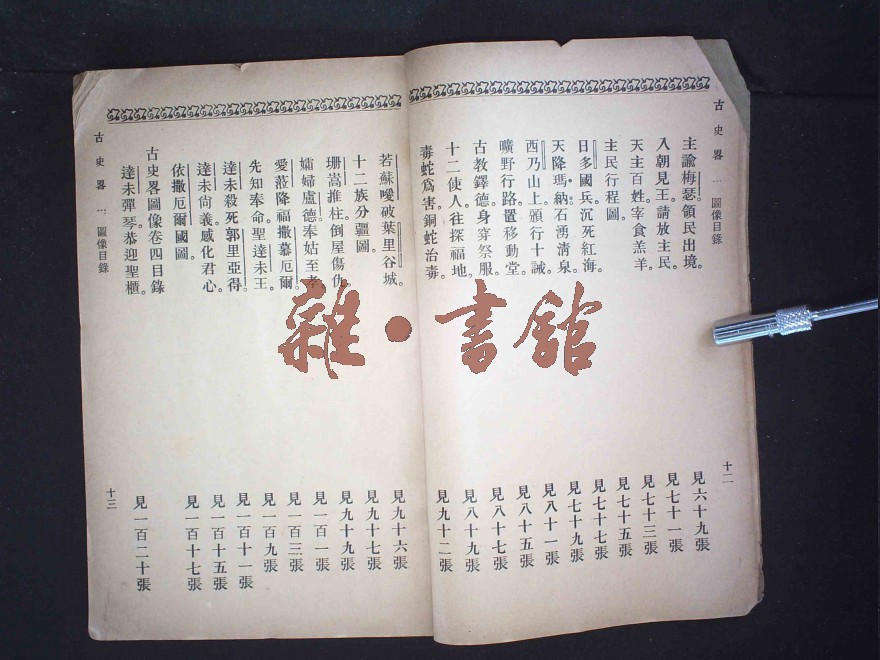 古史畧 … 圖像目錄
十二
主諭梅瑟領民出境。 見六十九張
入朝見王請放主民。 見七十一張
天主百姓宰食羔羊。 見七十三張
主民行程圖。 見七十五張
日多國兵沉死紅海。 見七十七張
天降瑪納石湧淸泉。 見七十九張
西乃山上頒行十誡 見八十一張
曠野行路置移動堂。 見八十五張
古教鐸德身穿祭服。 見八十七張
十二使人往探福地。 見八十九張
毒蛇爲害銅蛇治毒。 見九十二張
若蘇噯破葉里谷城。 見九十六張
十二族分疆圖。 見九十七張
珊嵩推柱倒屋傷仇 見九十九張
孀婦盧德奉姑至孝 見一百一張
愛蒞降福撒慕厄爾 見一百三張
先知奉命聖達未王。 見一百九張
達未殺死郭里亞得。 見一百十一張
達未尙義感化君心。 見一百十五張
依撒厄爾國圖。 見一百十七張
古史畧圖像卷四目錄
達未彈琴恭迎聖櫃。 見一百二十張
古史畧 … 圖像目錄
十三
雜•書館